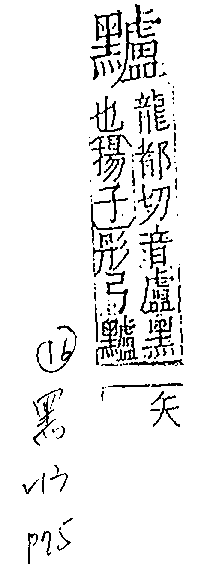 黸
龍都切音盧黑
也揚子彤弓黸
矢
16
黑
p75